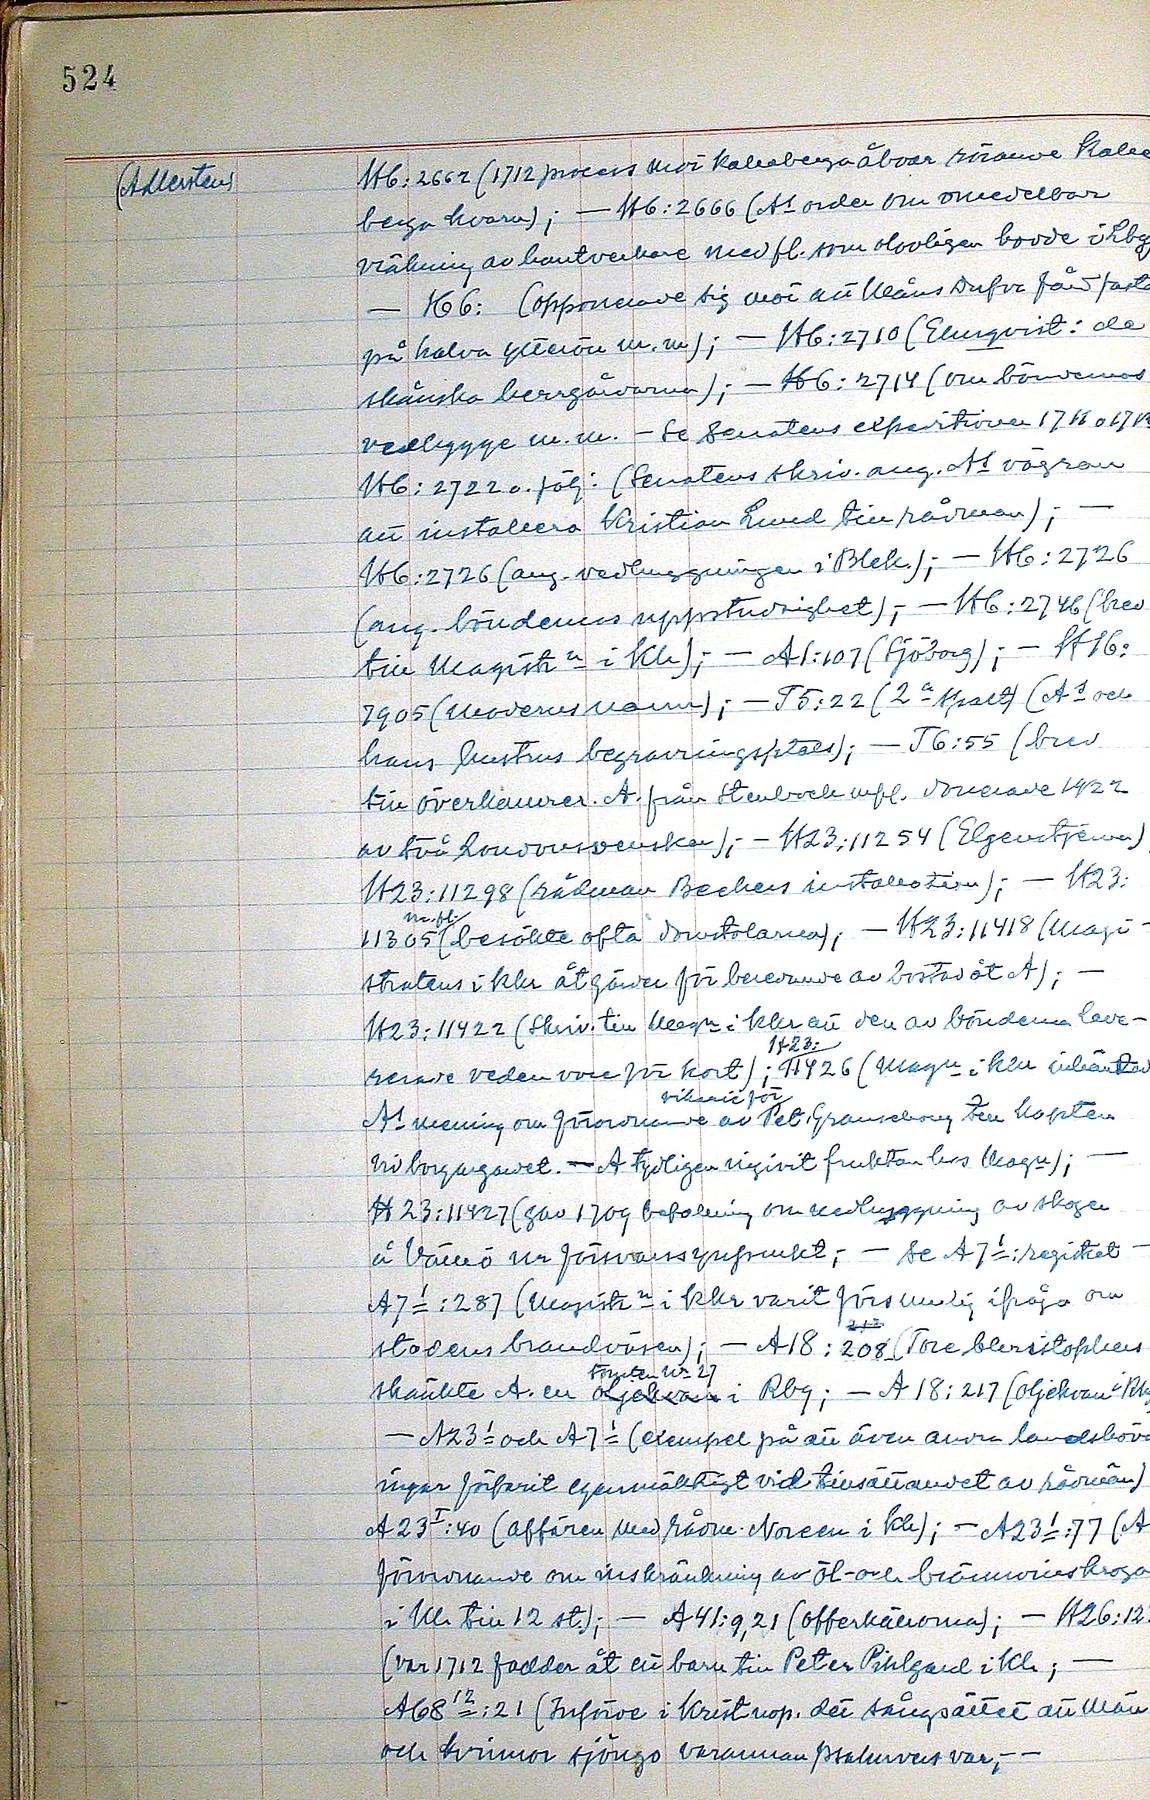 524
(Adlersten)
H6:2662 (1712 process mot Kalleberga åboar rörande Kalle-
berga kvarn); — H6:2666 (As order om omedelbar
vräkning av hantverkare med fl. som olovligen bodde i Lby
— H6: (opponerade sig mot att Måns Dufva får fasta
på halva Ytterön m.m); — H6:2710 (Elmqvist: de
skånska herrgårdarna); — H6:2714 (om böndernas
vedhygge m.m. — Se Senatens expeditioner 1711 o 1713
H6:2722 o. följ: (Senatens skriv. ang. As vägran
att installera Kristian Lund till rådman); —
H6:2726 (ang. vedhuggningen i Blek.); — H6:2726
(ang. böndernas uppstudsighet); — H6:2746 (brev
till Magistrn i Kh); — A1:107 (Sjöborg); — H16:
7905 (Moderns namn); — T5:22 (2a spalt) (As och
hans hustrus begravningsplats); — T6:55 (brev
till överkamrer. A. från Stenbock mfl. donerade 1922
av två Londonsvenskar); — H23:11254 (Elgenstjerna)
H23:11298 (rådman Beckers installation); — H23:
m.fl.
11305 (besökte ofta domstolarna); — H23:11418 (Magi-
stratens i Khr åtgärder för beredande av bostad åt A); —
H23:11422 (Skriv. till Magn i Khr att den av bönderna leve-
H23:
rerade veden vore för kort); 11426 (Magn i Khr inhämtad
vikarie för
As mening om förordnande av Pet. Granschoug till kapten
vid borgargardet. — A tydligen ingivit fruktan hos Magn); —
H23:11427 (gav 1709 befallning om nedhuggning av skogen
å Vämö ur försvarssynpunkt; — Se A7I:registret —
A7I:287 (Magistrn i Khr varit försumlig ifråga om
212
stadens brandväsen); — A18:208 (Tore Christophers
tomten nr 27
skänkte A. en oljekvarn i Rby; — A18:217 (oljekvarn i Rby
— A23I och A7I (exempel på att även andra landshövd
ingar förfarit egenmäktigt vid tillsättandet av rådmän)
A23I:40 (affären med rådm. Noreen i Kh); — A23I:77 (A
förordnande om inskränkning av öl- och brännvinskrogar
i Kh till 12 st.); — A41:9,21 (offerkällorna); — H26:12
(var 1712 fadder åt ett barn till Peter Pihlgard i Kh; —
A68 12:21 (Införde i Kristnop. det sångsättet att män
och kvinnor sjöngo varannan psalmvers var; —